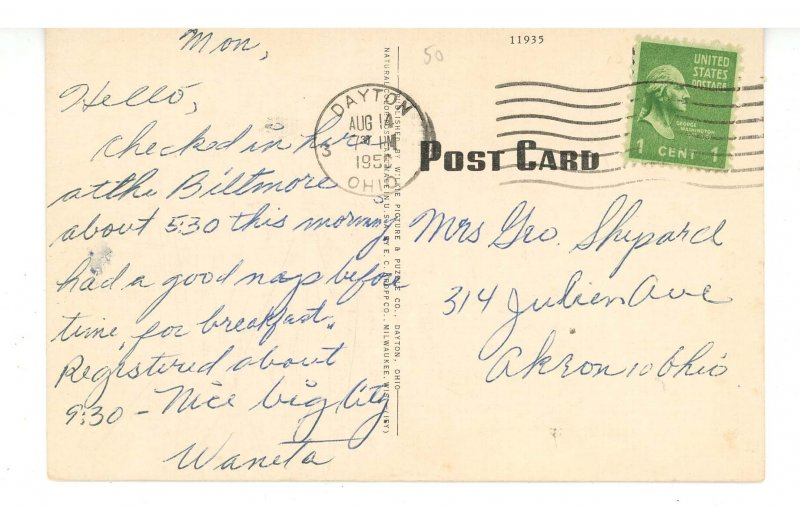 Mon,
Hello,
Checked in here
at the Biltmore
about 5:30 this morning
had a good nap before
time for breakfast.
Registered about
9:30 - Nice big City
Waneta
NATURAL COLOR
MADE IN U.S.A. BY E. C. KROPP CO., MILWAUKEE, WIS. (IEY)
PUBLISHED BY WILKIE PICTURE & PUZZLE CO., DAYTON, OHIO
50
11935
DAYTON
AUG 14
3
195
OHIO
POST CARD
UNITED
STATES
POSTAGE
GEORGE
WASHINGTON
1 CENT 1
Mrs Geo. Shepard
314 Julien Ave
Akron 10 Ohio